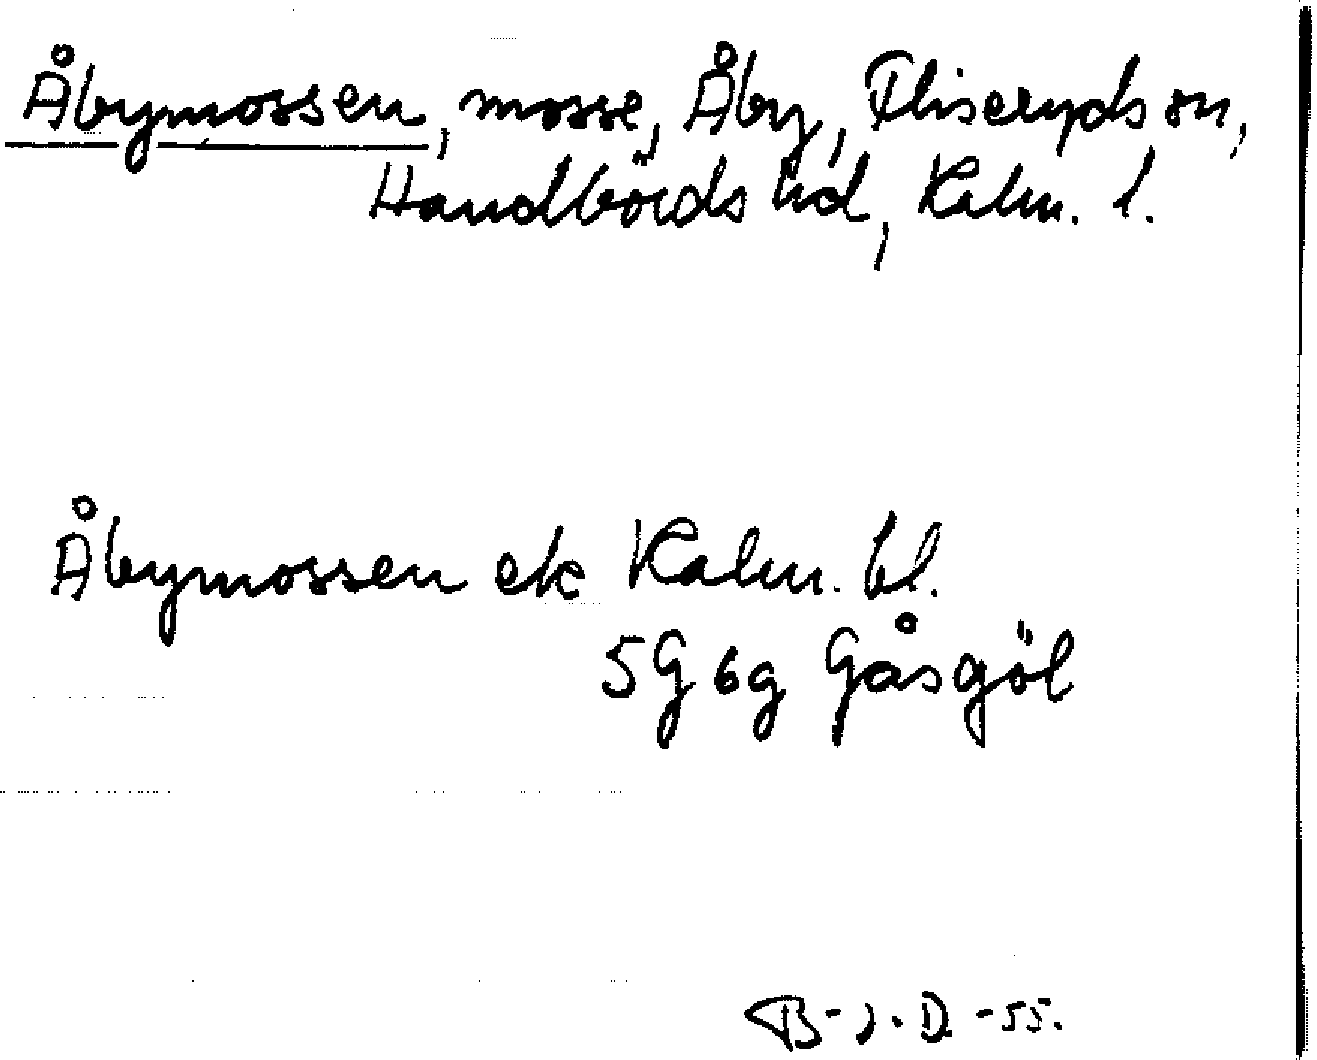 Åbymossen, mosse, Åby, Fliseryds sn,
Handbörds hd, Kalm. l.
Åbymossen ek Kalm. bl.
5G6g Gåsgöl
B-J.D-55.